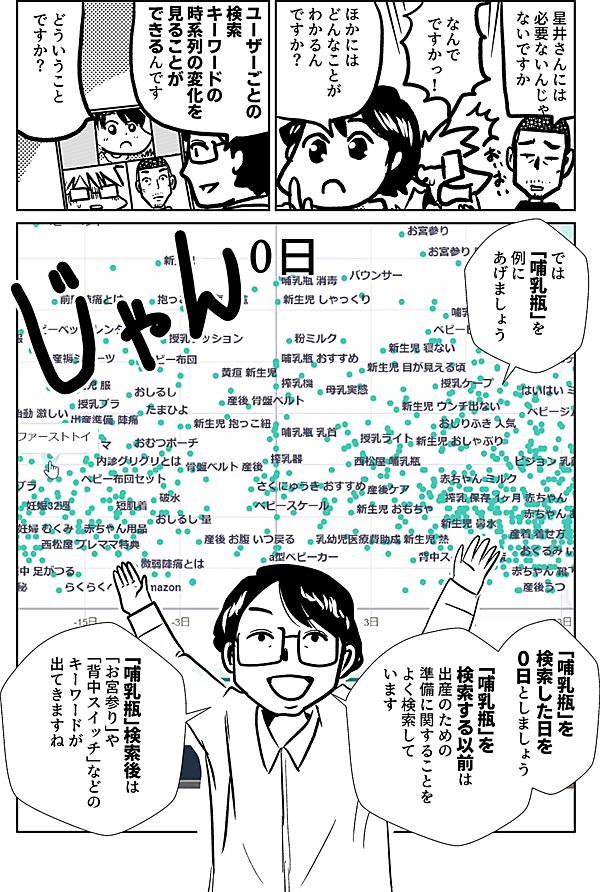 星井さんには
必要ないんじゃ
ないですか
なんで
ですかっ！
おぃおぃ
ほかには
どんなことが
わかるん
ですか？
ユーザーごとの
検索
キーワードの
時系列の変化を
見ることが
できるんです
どういうこと
ですか？
では
「哺乳瓶」を
例に
あげましょう
じゃん
0日
お宮参り
お宮参り
哺乳瓶 消毒
バウンサー
新生児 しゃっくり
授乳クッション
粉ミルク
新生児 寝ない
ベビー布団
哺乳瓶 おすすめ
黄疸 新生児
新生児 目が見える頃
搾乳機
母乳実感
授乳ケープ
はいはい ミ
おしるし
産後 骨盤ベルト
授乳ブラ
たまひよ
新生児 ウンチ出ない
ベビージ
出産準備 陣痛
新生児 抱っこ紐
おしりふき 人気
哺乳瓶 乳首
ファーストトイ
マ
おむつポーチ
授乳ライト
新生児 おしゃぶり
内診グリグリとは
骨盤ベルト 産後
搾乳器
西松屋 哺乳瓶
ピジョン 乳
ベビー布団セット
さくにゅうき おすすめ
産後ケア
赤ちゃん ミルク
破水
搾乳 保存
1ヶ月 赤ちゃん
妊娠32週
短肌着
ベビースケール
新生児 おもちゃ
おしるし 量
新生児 鼻水
赤ちゃん お
妊婦 むくみ
赤ちゃん用品
産着 着せ方
西松屋 プレママ特典
産後 お腹 いつ戻る
乳幼児医療費助成
新生児 熱
おくるみ い
微弱陣痛とは
a型ベビーカー
背中ス
中 足がつる
赤ちゃん 靴下
らくらく
mazon
産後うつ
-15日
-3日
3日
「哺乳瓶」を
検索した日を
0日としましょう
「哺乳瓶」を
検索する以前は
出産のための
準備に関することを
よく検索して
います
「哺乳瓶」検索後は
「お宮参り」や
「背中スイッチ」などの
キーワードが
出てきますね